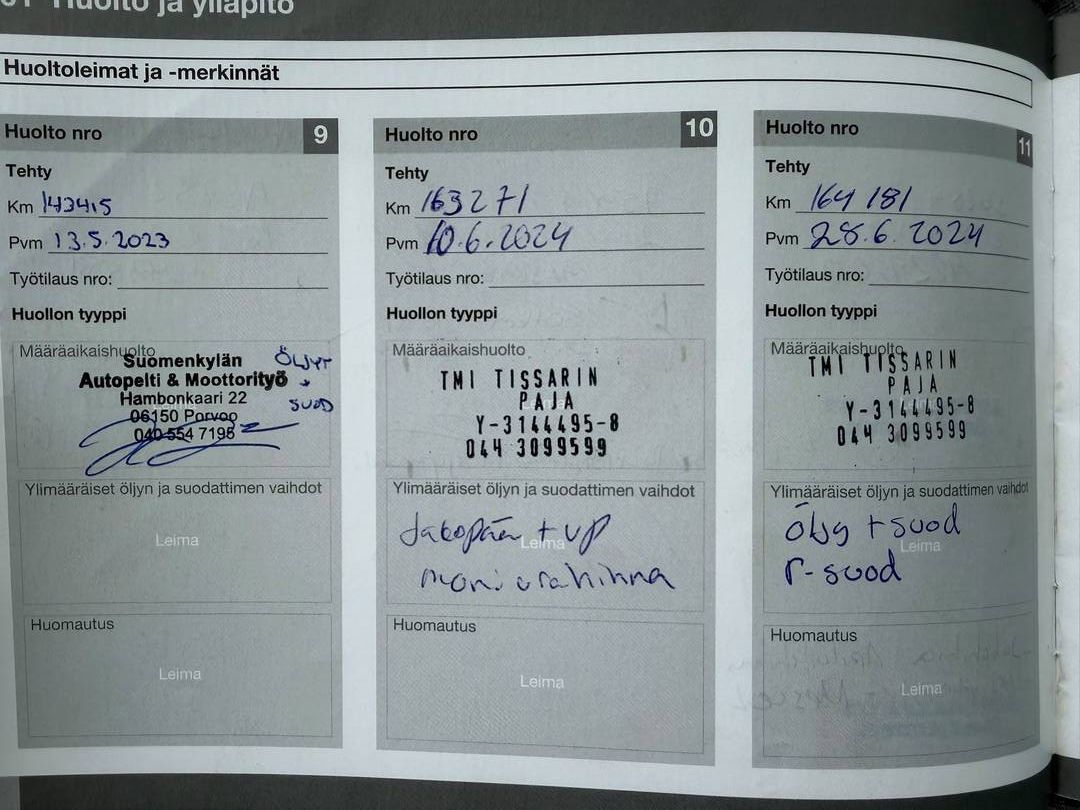 01 Huolto ja ylläpito
Huoltoleimat ja -merkinnät
Huolto nro 9
Tehty
Km 143415
Pvm 13.5.2023
Työtilaus nro:
Huollon tyyppi
Määräaikaishuolto
Suomenkylän
Autopelti & Moottorityö
Hambonkaari 22
06150 Porvoo
040 554 7195
ÖLJYT
+
SUOD
Ylimääräiset öljyn ja suodattimen vaihdot
Leima
Huomautus
Leima
Huolto nro 10
Tehty
Km 163271
Pvm 10.6.2024
Työtilaus nro:
Huollon tyyppi
Määräaikaishuolto
TMI TISSARIN
PAJA
Y-3144495-8
044 3099599
Ylimääräiset öljyn ja suodattimen vaihdot
Jakopää + vp
Leima
moniurahihna
Huomautus
Leima
Huolto nro 11
Tehty
Km 164 181
Pvm 28.6. 2024
Työtilaus nro:
Huollon tyyppi
Määräaikaishuolto
TMI TISSARIN
PAJA
Y-3144495-8
044 3099599
Ylimääräiset öljyn ja suodattimen vaihdot
öljy + suod
Leima
r-suod
Huomautus
Leima